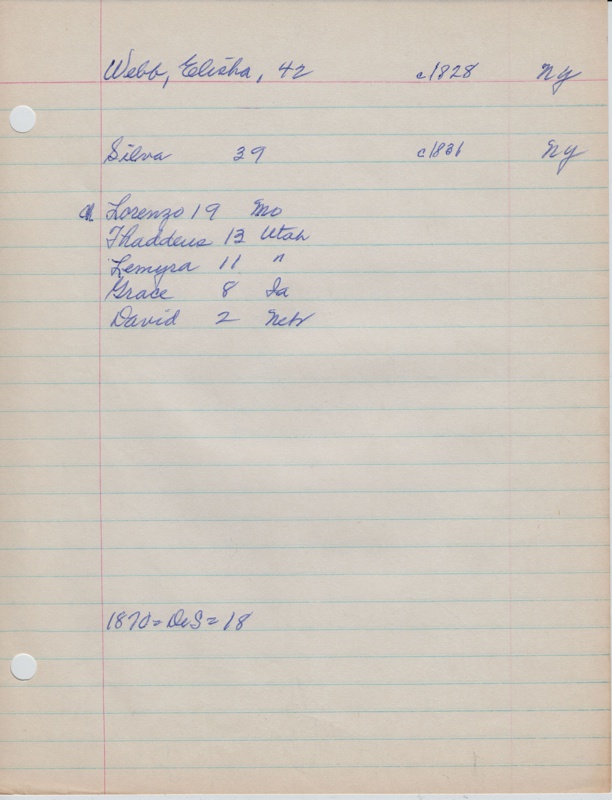 Webb, Elisha, 42 c1828 Ny
Silva 39 c1831 Ny
ch Lorenzo 19 Mo
Thaddeus 13 Utah
Lemyra 11 "
Grace 8 Ia
David 2 Nebr
1870 = DeS = 18